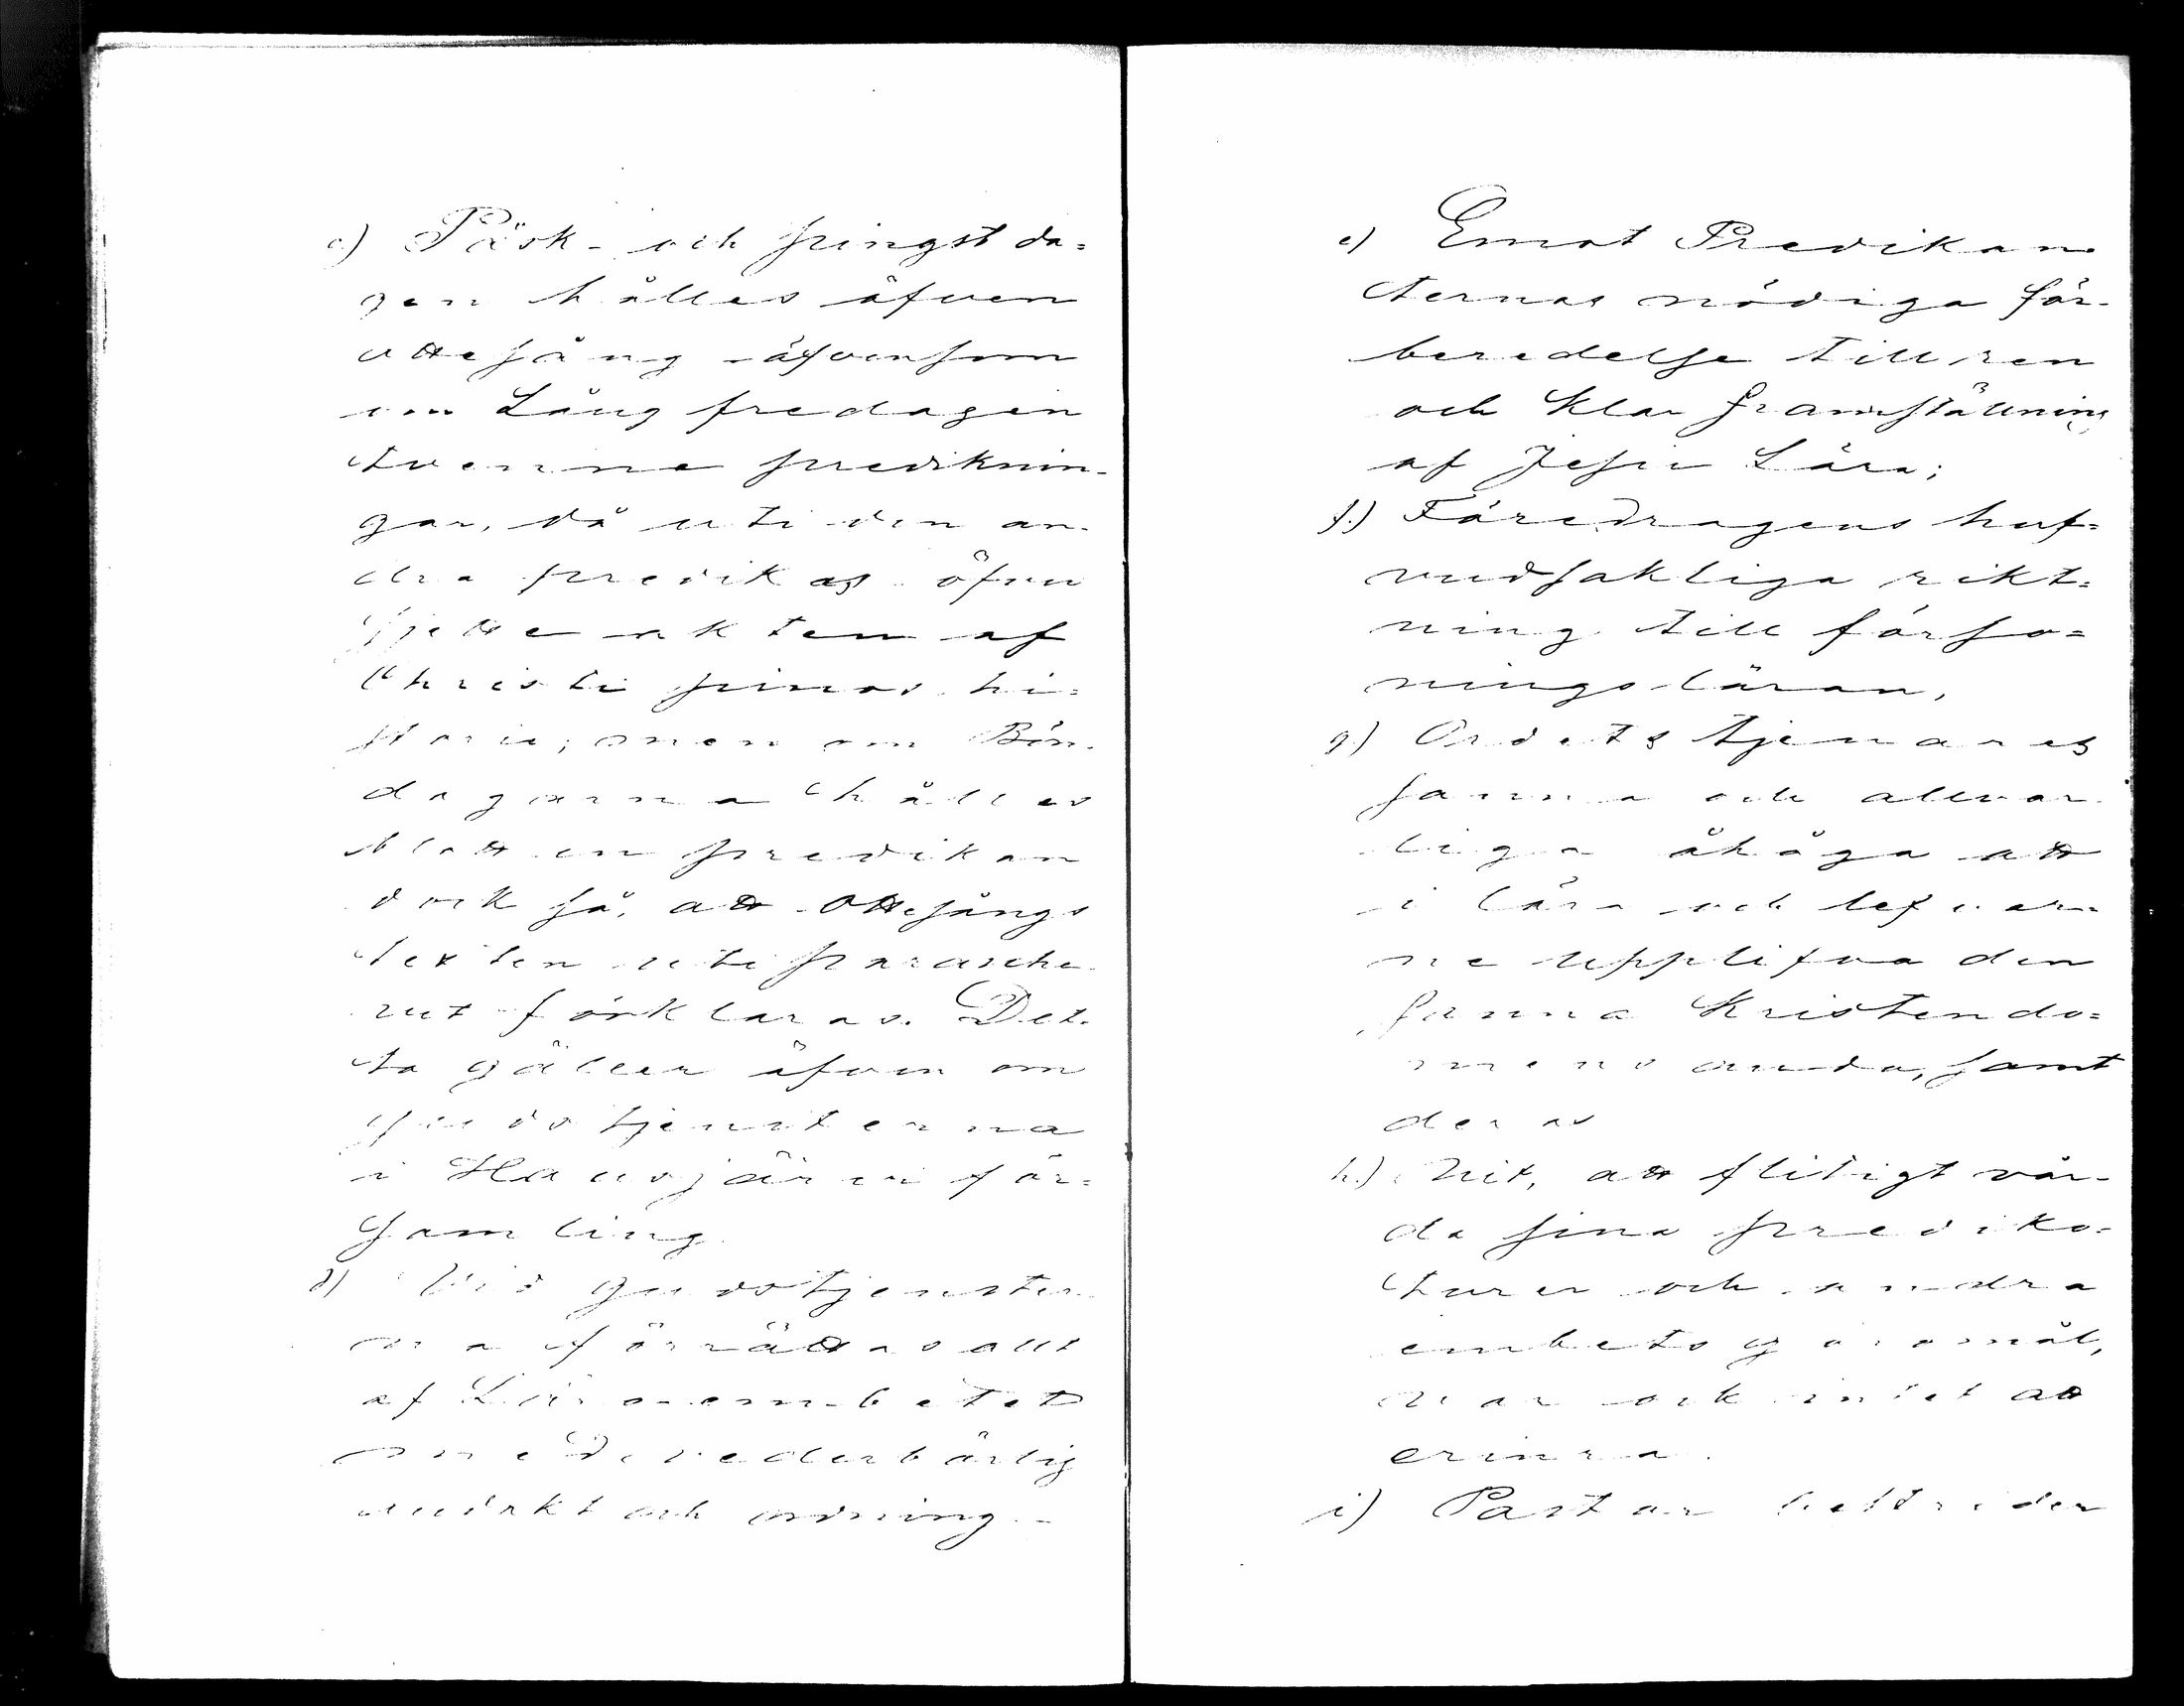 c) Påsk- och pingstda=
gen hålles äfven
ottesång äfvensom
om Långfredagen
tvenne prediknin-
gar, då uti den an-
dra predikas öfver
sjette akten af
Christi pinos hi=
storia; men om Bön-
dagarna hålles
blott en predikan
dock så, att ottesångs
texten uti
förklaras. Det-
ta gäller äfven om
gudstjensterna
i Hausjärvi för=
samling.
d) Vid gudstjenster-
na förrättas allt
af Läroembetet
med vederbörlig
andakt och ordning.-
e) Emot Predikan-
ternas nödiga för-
beredelse till ren
och klar framställning
af Jesu Lära;
f.) Föredragens huf=
vudsakliga rikt=
ning till förso=
ningsläran,
g.) Ordets tjenares
sanna och allvar-
liga åhåga att
i lära och lefver-
ne upplifva den
sanna Kristendo=
mens anda, samt
deras
h.) Nit, att flitigt vår-
da sina prediko-
turer och andra
embetsgöromål,
var ock intet att
erinra.
i) Pastor